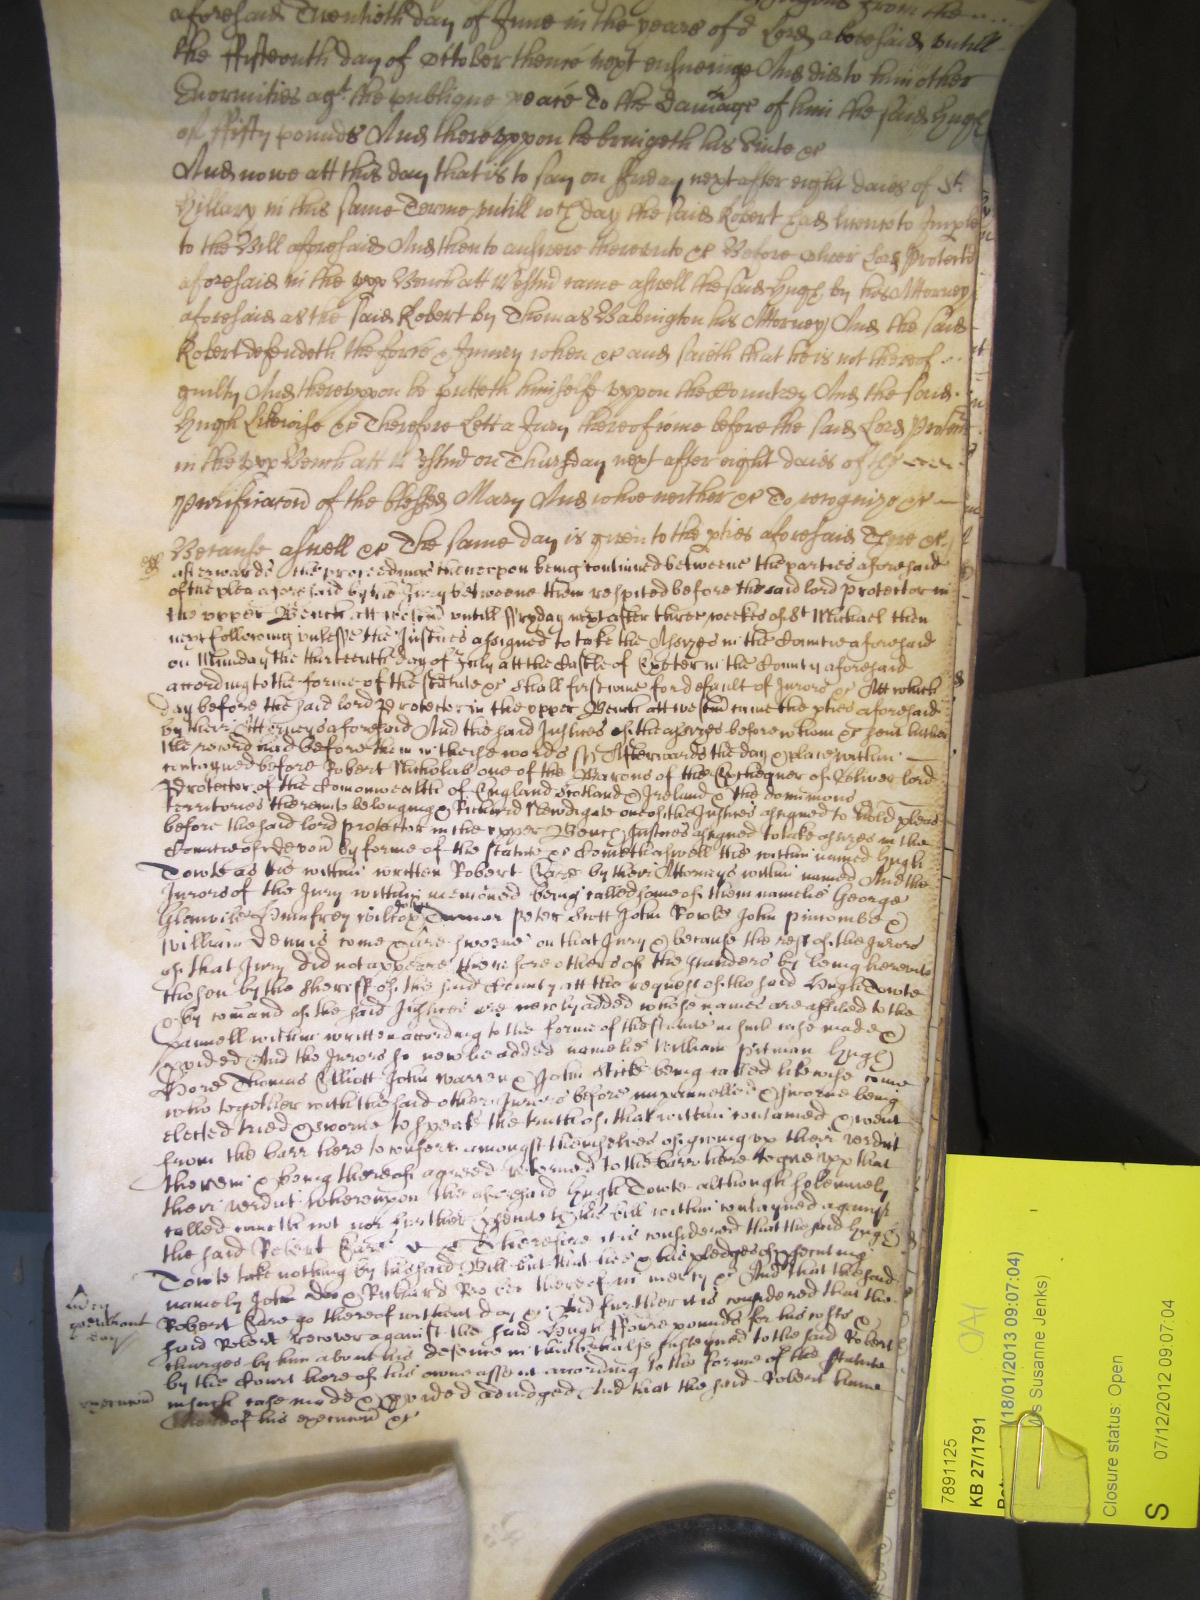 aforesaid Twentieth day of June in the yeare of oʳ Lord abovesaid untill
the ffifteenth day of October thence next ensueinge And did to him other
Enormities agᵗ the publique peace To the Damage of him the said Hugh
of ffifty pounds And thereuppon he bringeth his Suite &c
And nowe att this day that is to say on ffriday next after eight daies of Sᵗ
Hillary in this same Terme untill wᶜʰ day the said Robert had licence to Imparle
to the Bill aforesaid And then to answere thereunto &c Before Oliver Lord Protector
aforesaid in the upp Bench att Westmʳ came aswell the said Hugh by his Attorney
aforesaid as the said Robert by Thomas Babington his Attorney And the said
Robert defendeth the force & Injury when &c and saieth that he is not thereof
guilty And thereuppon he putteth himselfe uppon the Countrey And the said
Hugh Likewise &c Therefore Lett a Jury thereof come before the said Lord Protectoʳ
in the upp Bench att Westmʳ on Thursday next after eight daies of the
purificacon of the blessed Mary And whoe neither &c To recognize &c
Because aswell &c The same day is given to the pties aforesaid There &c
afterwards the proceedings thereupon being continued betweene the parties aforesaid
of the plea aforesaid by the Jury betweene them respited before the said lord protector in
the upper Bench att Westmʳ untill ffryday next after three weekes of Sᵗ Michael then
next following unlesse the Justices assigned to take the Assizes in the Countie aforesaid
on Munday the thirteenth day of July att the Castle of Exeter in the County aforesaid
according to the forme of the statute &c shall first come for default of Jurors &c Att which
day before the said lord Protector in the upper Bench att Westmʳ came the pties aforesaid
by their Attorneys aforesaid And the said Justices of the assizes before whom &c sent hither
the record had before them in these words ss Afterwards the day & place within
contayned before Robert Nicholas one of the Barons of the Exchequer of Oliver lord
Protector of the Comonwealth of England Scotland & Ireland & the dominions
territories thereunto belonging & Richard Newdigate one of the Justices assigned to hold pleas
before the said lord protector in the upper Bench Justices assigned to take assizes in the
Countie of Devon by forme of the statute &c Cometh aswell the within named Hugh
Towte as the within written Robert Care by their Attorneys within named And the
Jurors of the Jury within mencioned being called some of them namelie George
Glanvile Humfrey Wilcox Peter Scott John Rowle John pincombe &
William Dennis come & are sworne on that Jury & because the rest of the Jurors
of that Jury did not appeare therefore others of the standers by being hereunto
chosen by the Sheriff of the said County att the request of the said Hugh Towte
& by comand of the said Justices are newly added whose names are affiled to the
pannell within written according to the forme of the statute in such case made &
pvided And the Jurors so newlie added namelie William pitman Hugh
Pore Thomas Elliott John Warren & John Stick being called likewise come
who together with the said other Jurors before impannelled & sworne being
elected tried & sworne to speake the truth of that within contained & went
from the barr here to conferr amongst themselves of giving up their verdict
therein & being thereof agreed returned to the barr here to give upp that
their verdict whereupon the aforesaid Hugh Towte although solemnely
called cometh not nor further psecute his bill within contayned against
the said Robert Care Therefore it is considered that the said Hugh
Towte take nothing by his said Bill but that hee & his pledges of psecuting
namely John Doo & Richard Roo bee thereof in mercy &c And that the said
Robert Care go thereof without day &c And further it is considered that the
said Robert recover against the said Hugh ffoure pounds for his costs &
charges by him about his defence in this behalfe susteined to the said Robert
by the Court here of his owne assent according to the forme of the statute
in such case made & pvided adiudged And that the said Robert have
thereof his execucon &c
execucon
7891125
KB 27/1791
(18/01/2013 09:07:04)
s Susanne Jenks)
Closure status: Open
07/12/2012 09:07:04
S